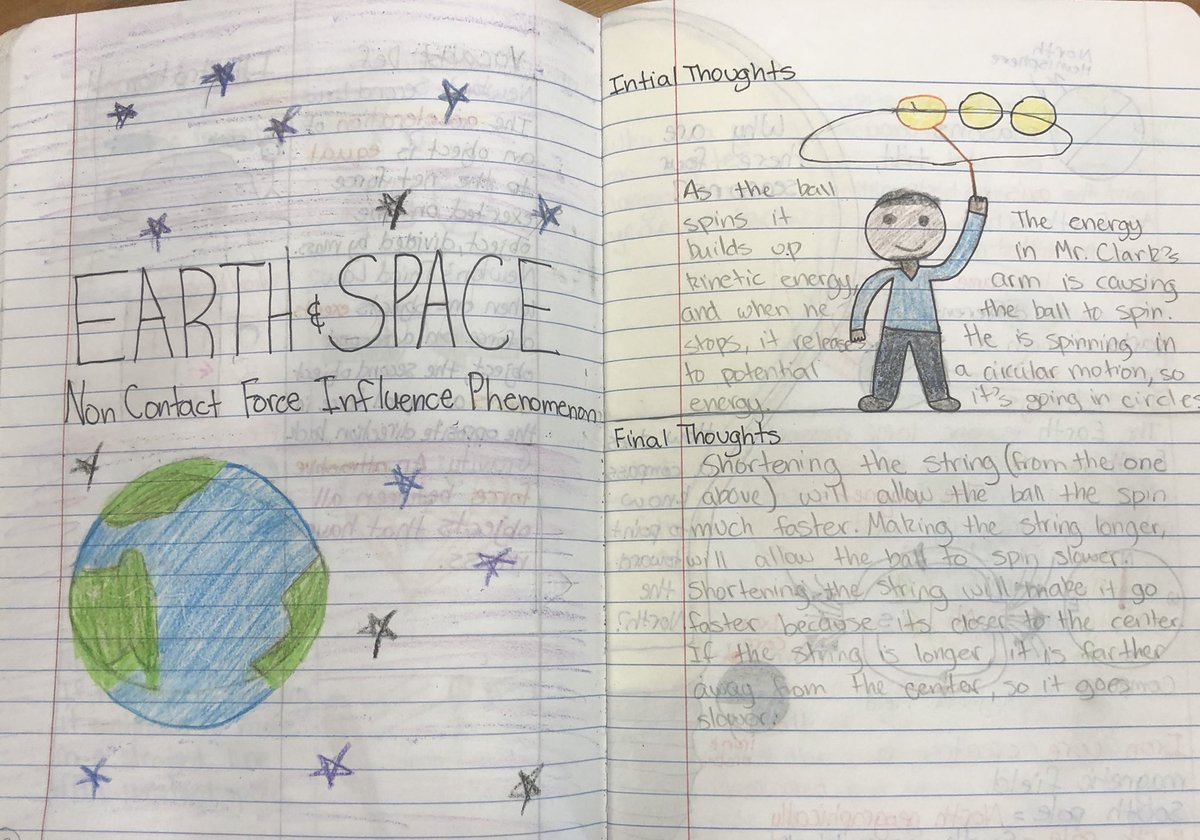 EARTH & SPACE
Non Contact Force Influence Phenomenon
Intial Thoughts
As the ball
spins it
builds up
kinetic energy,
and when he
stops, it release
to potential
energy.
The energy
in Mr. Clark's
arm is causing
the ball to spin.
He is spinning in
a circular motion, so
it's going in circles
Final Thoughts
Shortening the string (from the one
above) will allow the ball the spin
much faster. Making the string longer,
will allow the ball to spin slower.
Shortening the string will make it go
faster because its closer to the center
If the string is longer, it is farther
away from the center, so it goes
slower.